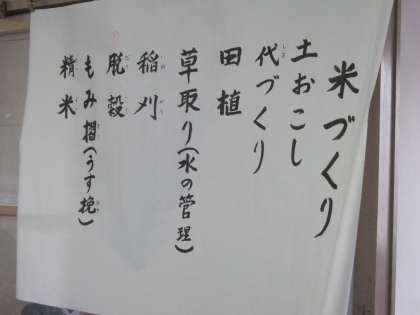 米づくり
土おこし
代づくり
田植
草取り(水の管理)
稲刈
脱穀
もみ摺(うす挽)
精米